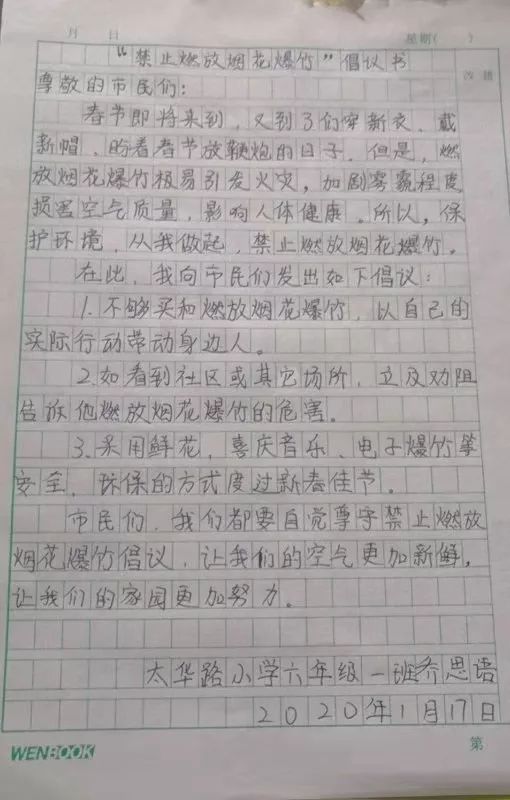 月 日 星期( )
“禁止燃放烟花爆竹”倡议书
改错
尊敬的市民们：
春节即将来到，又到了们穿新衣、戴
新帽、盼着春节放鞭炮的日子。但是，燃
放烟花爆竹极易引发火灾，加剧雾霾程度
损害空气质量，影响人体健康。所以，保
护环境，从我做起，禁止燃放烟花爆竹。
在此，我向市民们发出如下倡议：
1.不够买和燃放烟花爆竹，以自己的
实际行动带动身边人。
2.如看到社区或其它场所，立及劝阻
告诉他燃放烟花爆竹的危害。
3.采用鲜花，喜庆音乐、电子爆竹等
安全，环保的方式度过新春佳节。
市民们，我们都要自觉尊守禁止燃放
烟花爆竹倡议，让我们的空气更加新鲜，
让我们的家园更加努力。
太华路小学六年级一班乔思语
2020年1月17日
WENBOOK 第